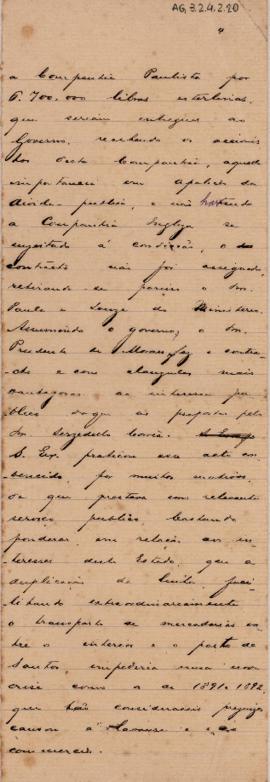 AG.3.2.4.2.20
4
a Companhia Paulista por
6.700.000 libras esterlinas,
que seriam entregues ao
Governo, recebendo os accionis-
tas desta Companhia, aquella
importancia em apolices da
divida publica, e não havendo
a Companhia Ingleza se
sujeitado á condição, o
contracto não foi assignado,
retirando-se porém o Snr.
Paula e Souza do Ministerio.
Assumindo o governo, o Snr.
Presidente de Moraes fez o contra-
cto e com clausulas mais
vantajosas ao interesse pu-
blico do que as propostas pelo
Snr. Serzedello Corrêa.
S. Ex. praticou esse acto con-
vencido, por muitos motivos,
de que prestava um relevante
serviço publico, bastando
ponderar, em relação aos in-
teresses deste Estado, que a
duplicação da linha, faci-
litando extraordinariamente
o transporte de mercadorias en-
tre o interior e o porto de
Santos, impediria uma nova
crise como a de 1891 e 1892,
que tão consideraveis prejuizos
causou á lavoura e ao
commercio.